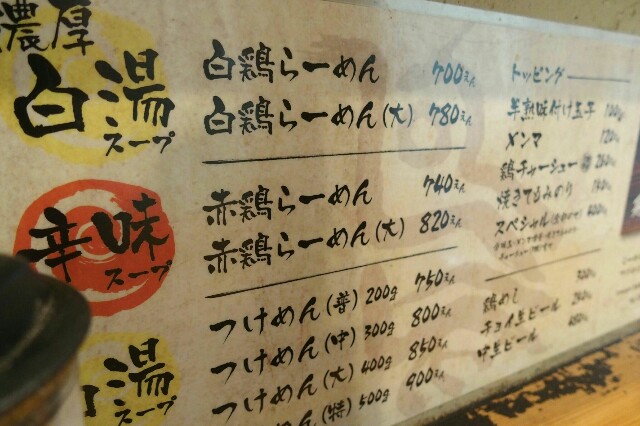 濃厚
白湯
スープ
白鶏らーめん 700えん
白鶏らーめん(大) 780えん
辛味
スープ
赤鶏らーめん 740えん
赤鶏らーめん(大) 820えん
湯
スープ
つけめん(普)200g 750えん
つけめん(中)300g 800えん
つけめん(大)400g 850えん
めん(特)500g 900えん
トッピング
半熟味付け玉子 100
メンマ 120
鶏チャーシュー
焼きてもみのり
スペシャル
鶏めし
チョイ生ビール
中生ビール